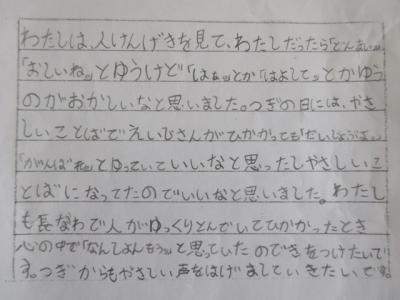 わたしは、人けんげきを見て、わたしだったら「どんまい。」
「おしいね。」とゆうけど「はぁ。」とか「はよして。」とかゆう
のがおかしいなと思いました。つぎの日には、やさ
しいことばでえいじさんがひかかっても「だいじょうぶ。」
「がんばれ。」とゆっていていいなと思ったしやさしいこ
とばになってたのでいいなと思いました。わたし
も長なわで人がゆっくりとんでいてひかかったとき
心の中で「なんしよんもう。」と思っていたのできをつけたいで
す。つぎからもやさしい声をはげましていきたいです。